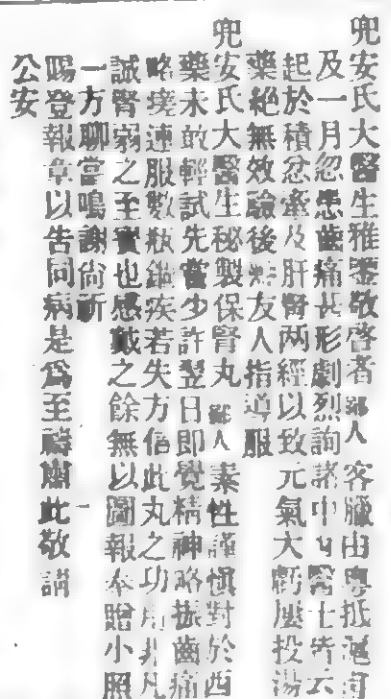 兜安氏大醫生雅鑒敬啓者鄙人客臘由粵抵滬
及一月忽患齒痛甚形劇烈詢諸中西醫士皆云
起於積忿牽及肝腎两經以致元氣大虧屢投湯
藥絕無效驗後經友人指導服
兜安氏大醫生秘製保腎丸鄙人素性謹慎對於西
藥未敢輕試先嘗少許翌日即覺精神略振齒痛
略痊連服數瓶錮疾若失方信此丸之功用非凡
誠腎弱之至寶也感戴之餘無以圖報奉贈小照
一方聊當鳴謝尙祈
賜登報章以告同病是爲至禱耑此敬請
公安